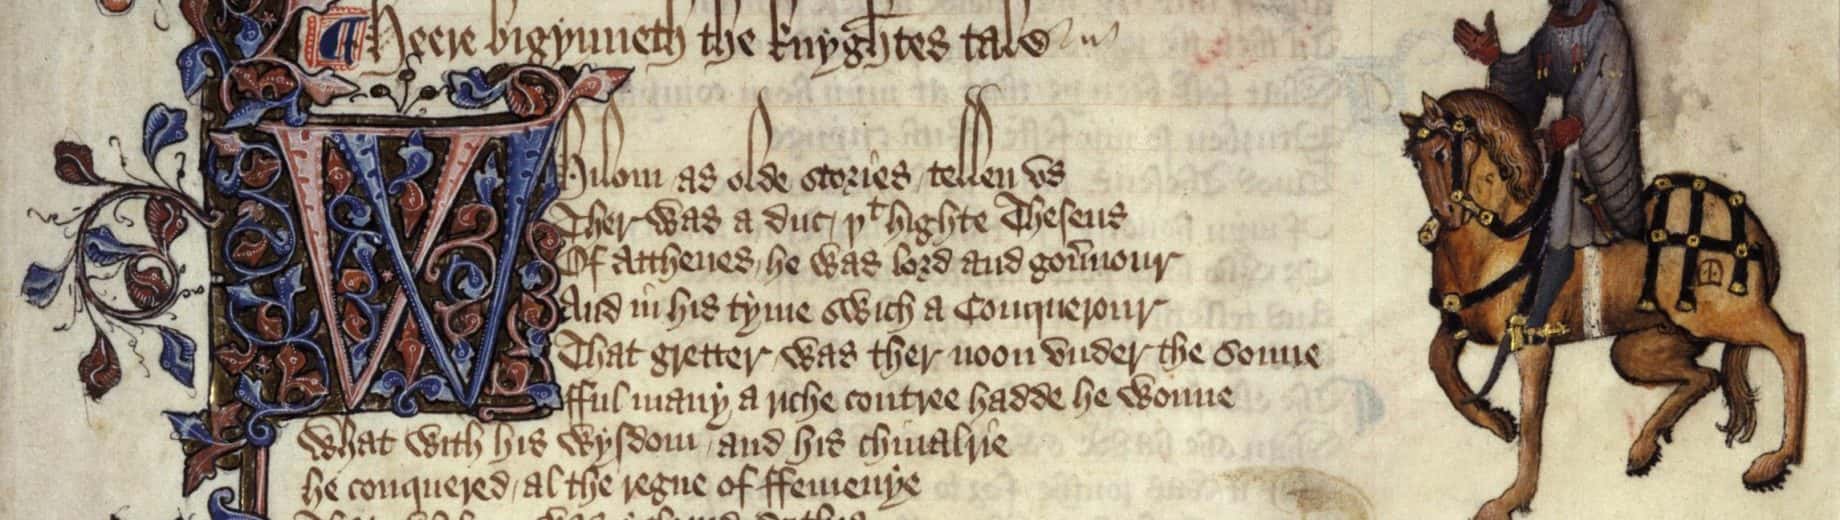 Heere bigynneth the knyghtes tale
Whilom as olde stories tellen vs
Ther was a duc / þͭ highte Theseus
Of Atthenes / he was lord and gou̅nour
And in his tyme swich a Conquerour
That gretter was ther noon vnder the sonne
fful many a riche contree hadde he wonne
What with his wysdom / and his chiualrie
he conquered / al the regne of ffemenye